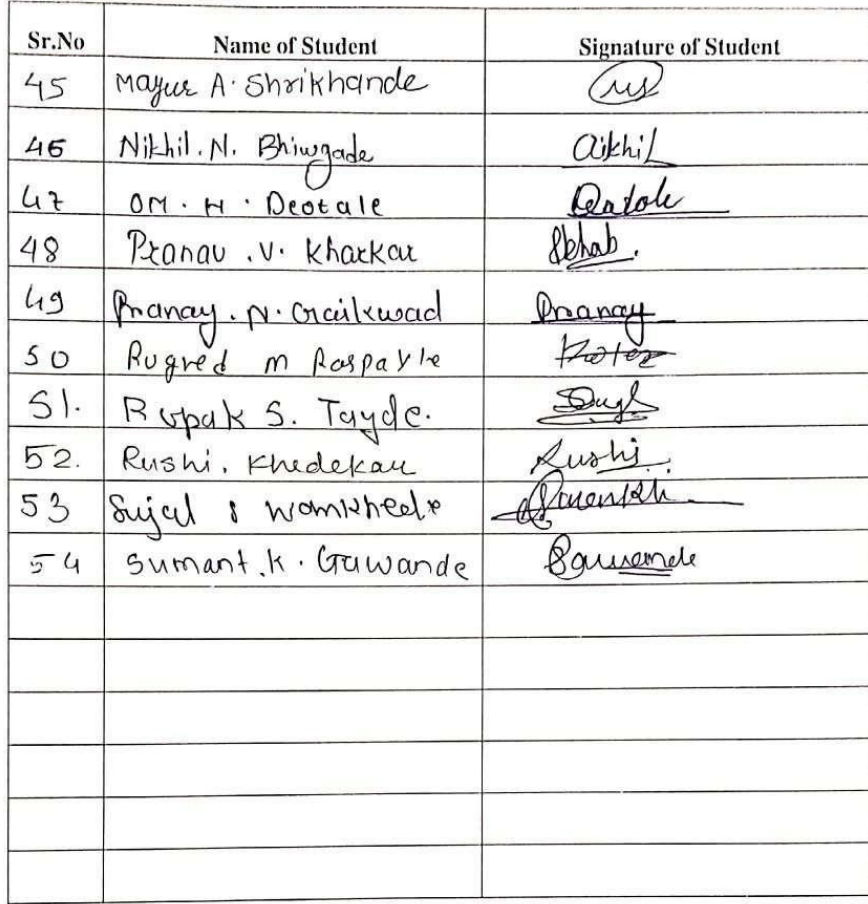 Sr.No Name of Student Signature of Student
45 Mayur A. Shrikhande
46 Nikhil. N. Bhiwgade
47 OM. H. Deotale
48 Pranav. V. Kharkar
49 Pranay. N. Gaikwad Pranay
50 Rugved m Raspayle
51. Rupak S. Tayde.
52. Rushi. Khedekar Rushi.
53 Sujal s wankhede
54 Sumant. K. Gawande Gawande